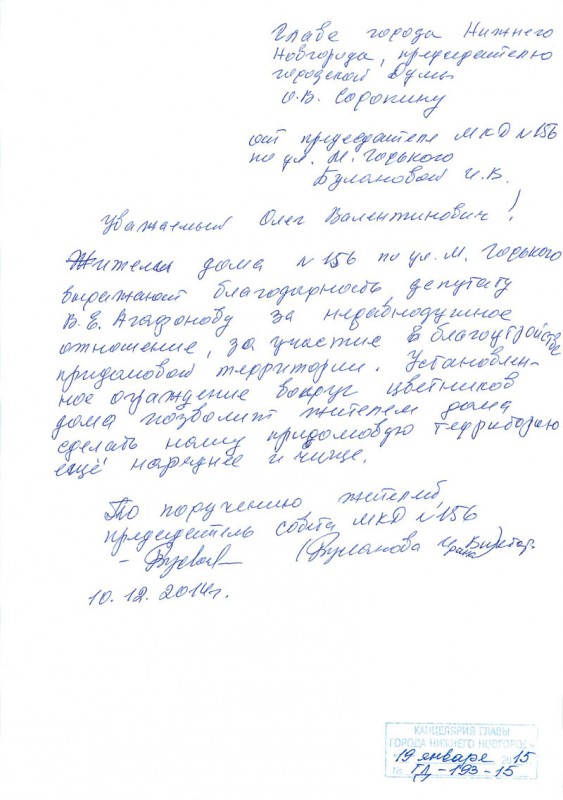 Главе города Нижнего
Новгорода, председателю
городской Думы
О.В. Сорокину
от председателя МКД №156
по ул. М. Горького
Булановой И.В.
Уважаемый Олег Валентинович!
Жители дома №156 по ул. М. Горького
выражают благодарность депутату
В.Е. Агафонову за неравнодушное
отношение, за участие в благоустройстве
придомовой территории. Установлен-
ное ограждение вокруг цветников
дома позволит жителям дома
сделать нашу придомовую территорию
ещё наряднее и чище.
По поручению жителей,
председатель совета МКД №156
(Буланова
10.12.2014г.
КАНЦЕЛЯРИЯ ГЛАВЫ
ГОРОДА НИЖНЕГО НОВГОРОДА
19 января 2015
№ ГД-193-15